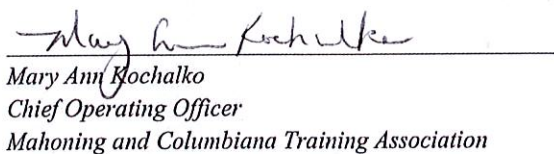 Mary Ann Kochalko
Mary Ann Kochalko
Chief Operating Officer
Mahoning and Columbiana Training Association